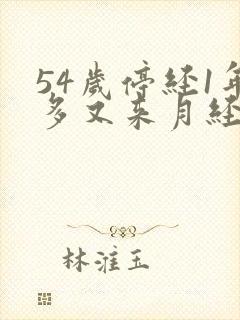 54歲停经1年
多又来月经
林淮玉